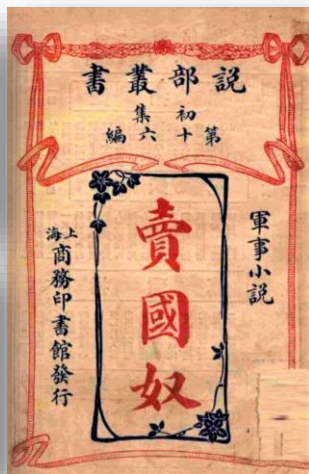 説部叢書
初集
第十六編
軍事小説
賣國奴
上海
商務印書館發行